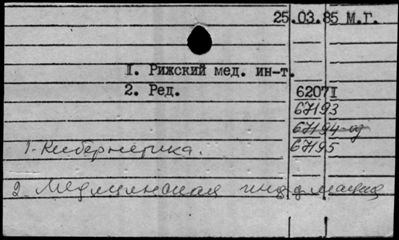 25.03.85 М.Г.
1. Рижский мед. ин-т.
2. Ред.
62071
67193
67194-
67195
1-Кибернетика.
2 Медицинская информация